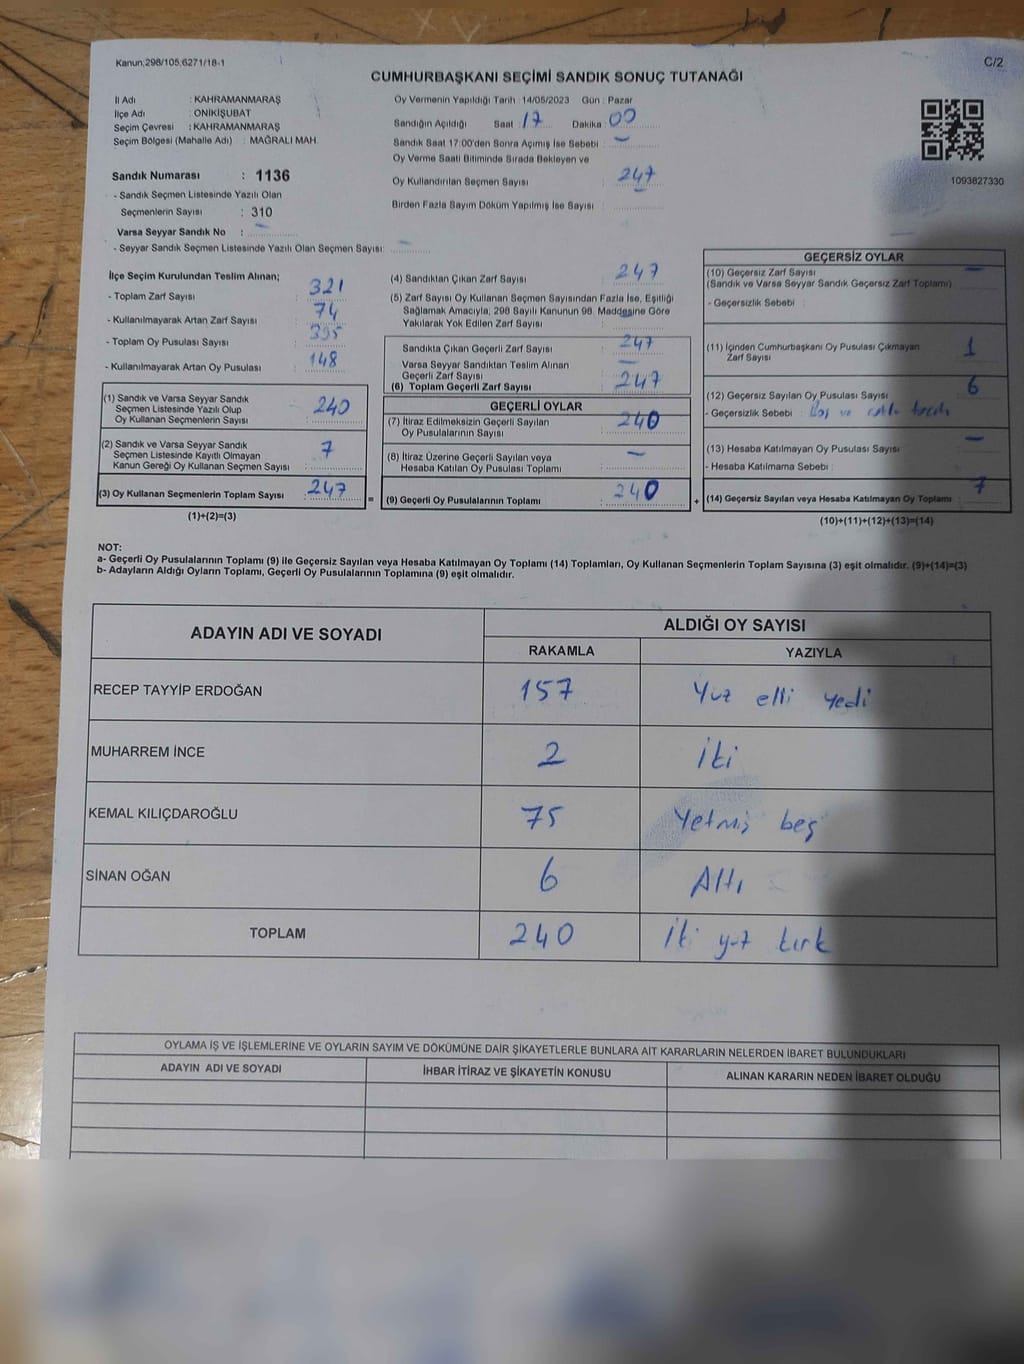 Kanun;298/105;6271/18-1
C/2
CUMHURBAŞKANI SEÇİMİ SANDIK SONUÇ TUTANAĞI
İl Adı : KAHRAMANMARAŞ
İlçe Adı : ONİKİŞUBAT
Seçim Çevresi : KAHRAMANMARAŞ
Seçim Bölgesi (Mahalle Adı) : MAĞRALI MAH.
Sandık Numarası : 1136
- Sandık Seçmen Listesinde Yazılı Olan
Seçmenlerin Sayısı : 310
Varsa Seyyar Sandık No : -
- Seyyar Sandık Seçmen Listesinde Yazılı Olan Seçmen Sayısı: -
Oy Vermenin Yapıldığı Tarih : 14/05/2023 Gün : Pazar
Sandığın Açıldığı Saat : 17 Dakika : 00
Sandık Saat 17:00'den Sonra Açımış İse Sebebi : -
Oy Verme Saati Bitiminde Sırada Bekleyen ve
Oy Kullandırılan Seçmen Sayısı : 247
Birden Fazla Sayım Döküm Yapılmış İse Sayısı : -
1093827330
İlçe Seçim Kurulundan Teslim Alınan;
- Toplam Zarf Sayısı : 321
- Kullanılmayarak Artan Zarf Sayısı : 74
- Toplam Oy Pusulası Sayısı : 395
- Kullanılmayarak Artan Oy Pusulası : 148
(1) Sandık ve Varsa Seyyar Sandık
Seçmen Listesinde Yazılı Olup
Oy Kullanan Seçmenlerin Sayısı : 240
(2) Sandık ve Varsa Seyyar Sandık
Seçmen Listesinde Kayıtlı Olmayan
Kanun Gereği Oy Kullanan Seçmen Sayısı : 7
(3) Oy Kullanan Seçmenlerin Toplam Sayısı : 247
(1)+(2)=(3)
=
(4) Sandıktan Çıkan Zarf Sayısı : 247
(5) Zarf Sayısı Oy Kullanan Seçmen Sayısından Fazla İse, Eşitliği
Sağlamak Amacıyla, 298 Sayılı Kanunun 98. Maddesine Göre
Yakılarak Yok Edilen Zarf Sayısı : -
Sandıkta Çıkan Geçerli Zarf Sayısı : 247
Varsa Seyyar Sandıktan Teslim Alınan
Geçerli Zarf Sayısı : -
(6) Toplam Geçerli Zarf Sayısı : 247
GEÇERLİ OYLAR
(7) İtiraz Edilmeksizin Geçerli Sayılan
Oy Pusulalarının Sayısı : 240
(8) İtiraz Üzerine Geçerli Sayılan veya
Hesaba Katılan Oy Pusulası Toplamı : -
(9) Geçerli Oy Pusulalarının Toplamı : 240
+
GEÇERSİZ OYLAR
(10) Geçersiz Zarf Sayısı : -
(Sandık ve Varsa Seyyar Sandık Geçersiz Zarf Toplamı)
- Geçersizlik Sebebi :
(11) İçinden Cumhurbaşkanı Oy Pusulası Çıkmayan
Zarf Sayısı : 1
(12) Geçersiz Sayılan Oy Pusulası Sayısı : 6
- Geçersizlik Sebebi : Boş ve
(13) Hesaba Katılmayan Oy Pusulası Sayısı : -
- Hesaba Katılmama Sebebi :
(14) Geçersiz Sayılan veya Hesaba Katılmayan Oy Toplamı : 7
(10)+(11)+(12)+(13)=(14)
NOT:
a- Geçerli Oy Pusulalarının Toplamı (9) ile Geçersiz Sayılan veya Hesaba Katılmayan Oy Toplamı (14) Toplamları, Oy Kullanan Seçmenlerin Toplam Sayısına (3) eşit olmalıdır. (9)+(14)=(3)
b- Adayların Aldığı Oyların Toplamı, Geçerli Oy Pusulalarının Toplamına (9) eşit olmalıdır.
ADAYIN ADI VE SOYADI
ALDIĞI OY SAYISI
RAKAMLA YAZIYLA
RECEP TAYYİP ERDOĞAN 157 Yüz elli yedi
MUHARREM İNCE 2 İki
KEMAL KILIÇDAROĞLU 75 Yetmiş beş
SİNAN OĞAN 6 Altı
TOPLAM 240 İki yüz kırk
OYLAMA İŞ VE İŞLEMLERİNE VE OYLARIN SAYIM VE DÖKÜMÜNE DAİR ŞİKAYETLERLE BUNLARA AİT KARARLARIN NELERDEN İBARET BULUNDUKLARI
ADAYIN ADI VE SOYADI İHBAR İTİRAZ VE ŞİKAYETİN KONUSU ALINAN KARARIN NEDEN İBARET OLDUĞU